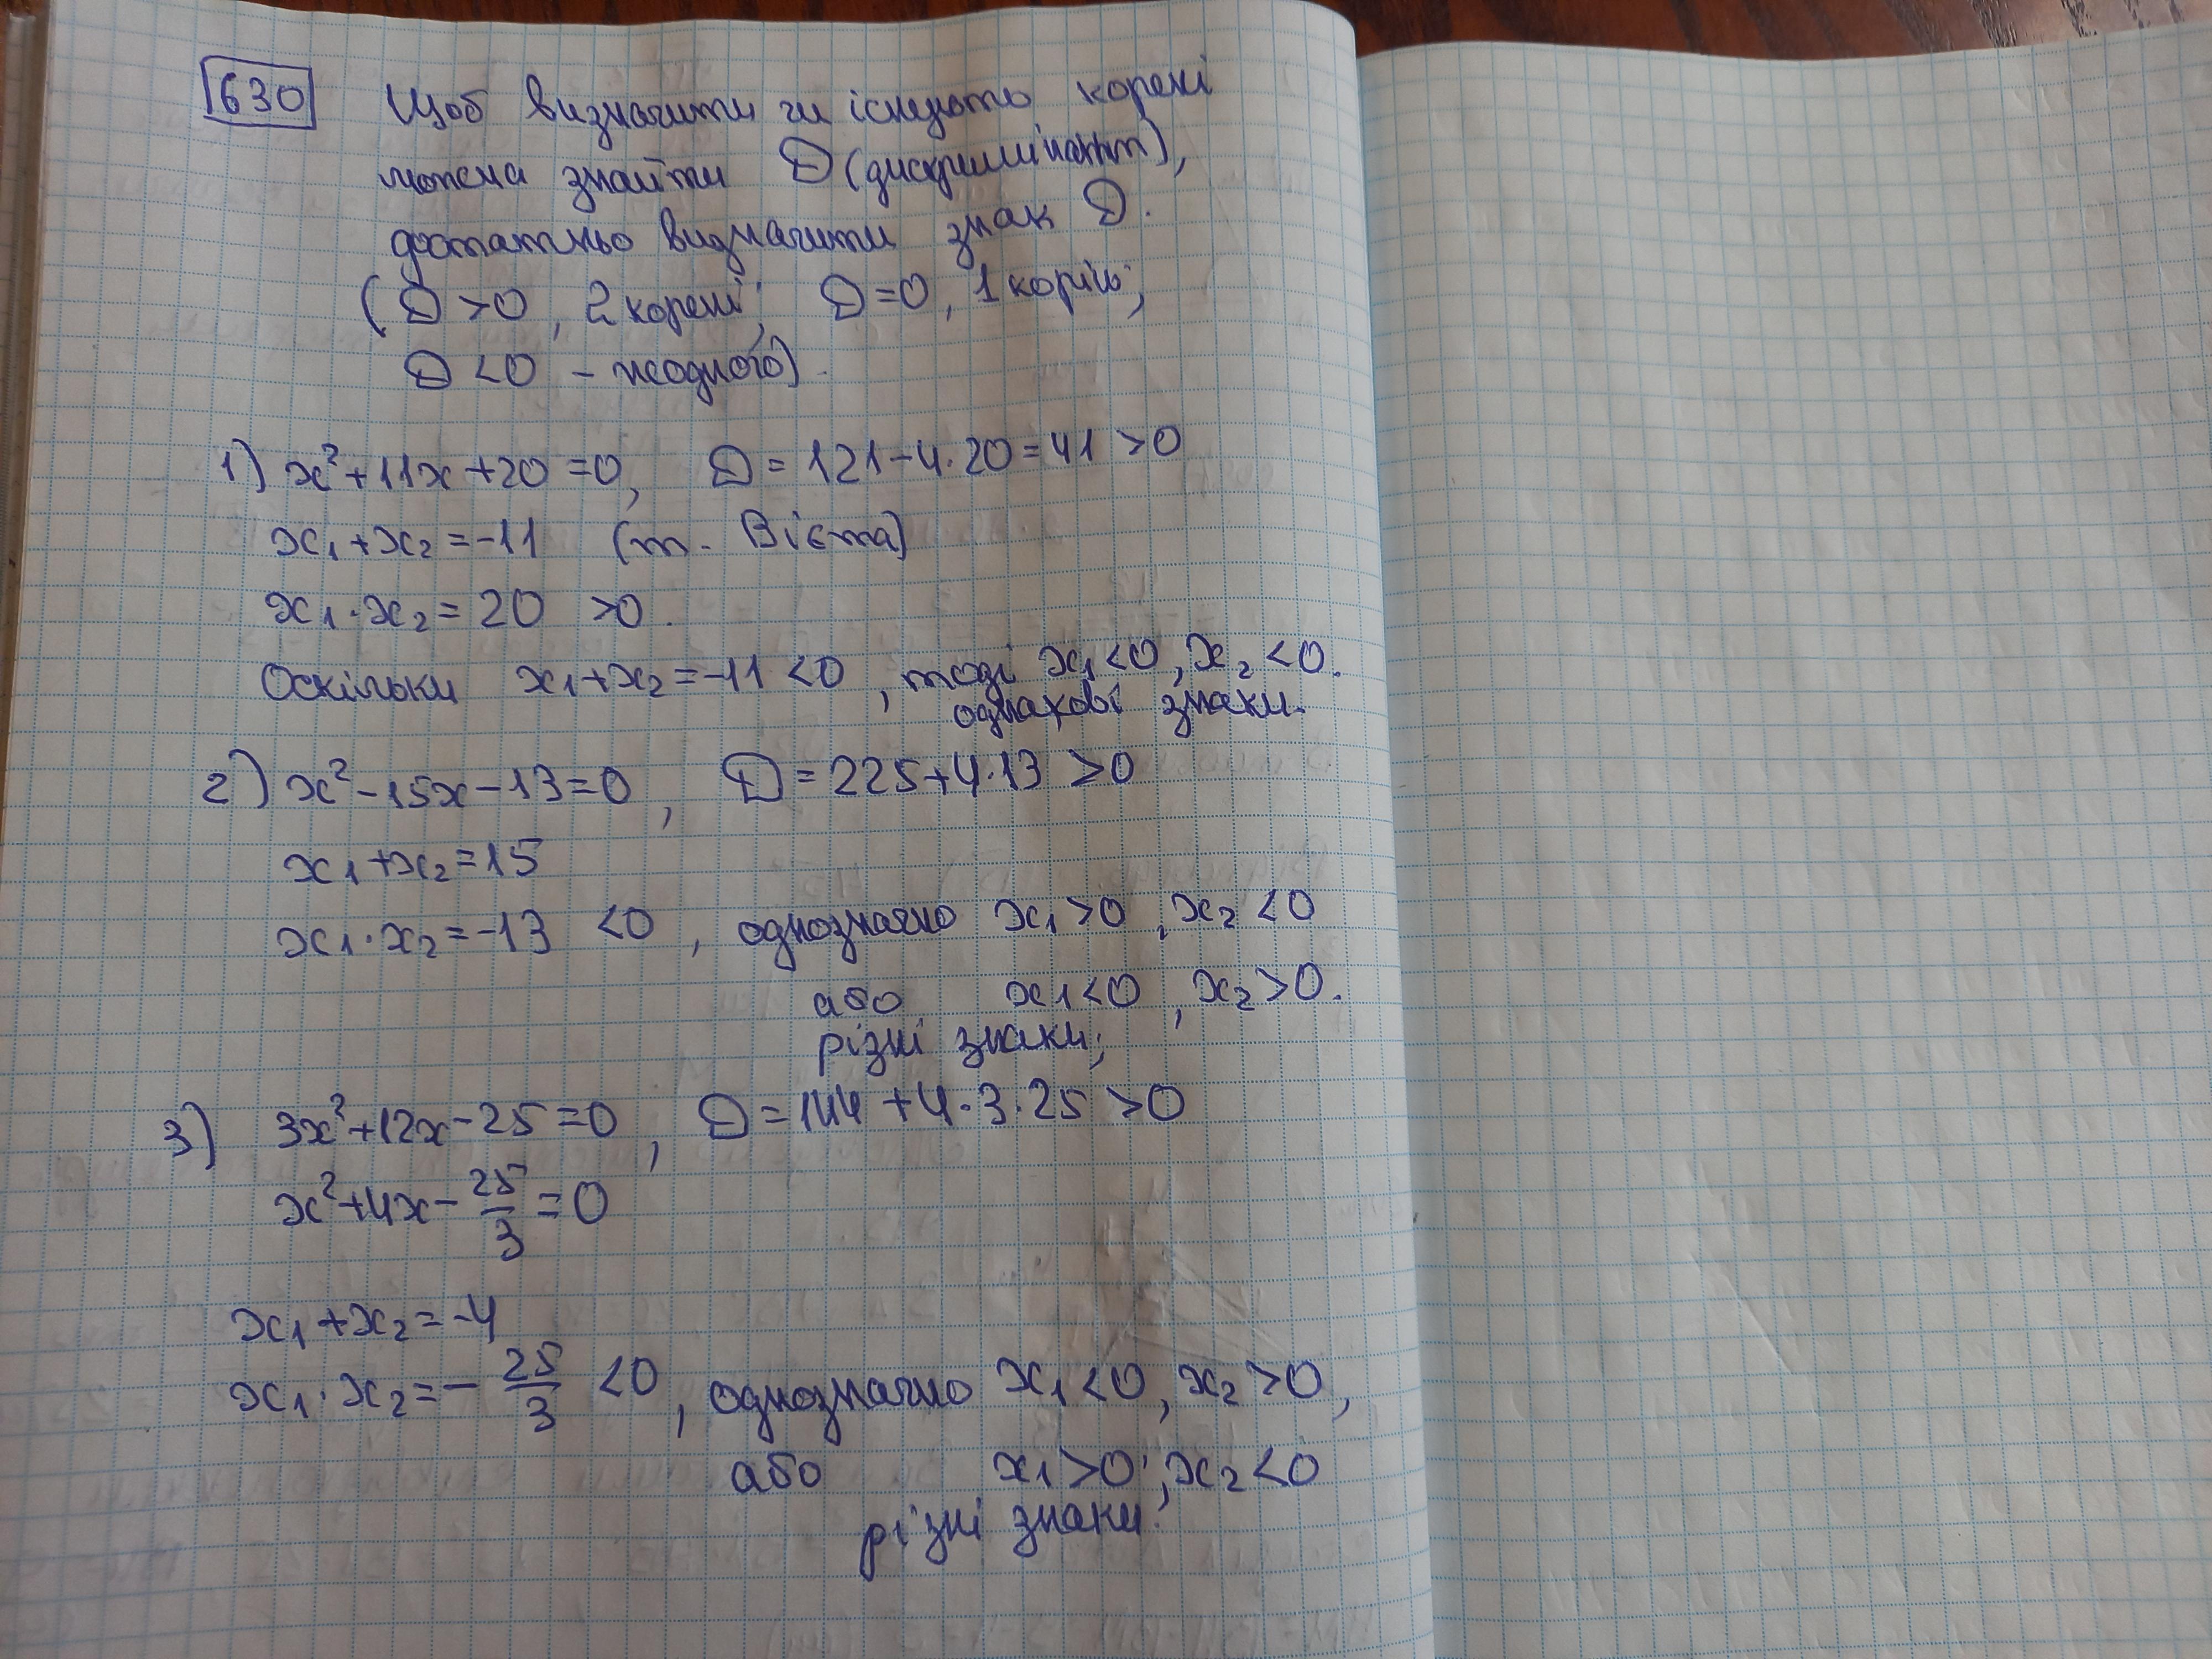 630 Щоб визначити чи існують корені
можна знайти D (дискримінант),
достатньо визначити знак D.
(D > 0, 2 корені; D = 0, 1 корінь;
D < 0 - жодного).
1) x² + 11x + 20 = 0, D = 121 - 4 · 20 = 41 > 0
x₁ + x₂ = -11 (т. Вієта)
x₁ · x₂ = 20 > 0.
Оскільки x₁ + x₂ = -11 < 0, тоді x₁ < 0, x₂ < 0.
однакові знаки.
2) x² - 15x - 13 = 0, D = 225 + 4 · 13 > 0
x₁ + x₂ = 15
x₁ · x₂ = -13 < 0, однозначно x₁ > 0, x₂ < 0
або x₁ < 0, x₂ > 0.
різні знаки;
3) 3x² + 12x - 25 = 0, D = 144 + 4 · 3 · 25 > 0
x² + 4x - 25/3 = 0
x₁ + x₂ = -4
x₁ · x₂ = - 25/3 < 0, однозначно x₁ < 0, x₂ > 0,
або x₁ > 0, x₂ < 0
різні знаки.